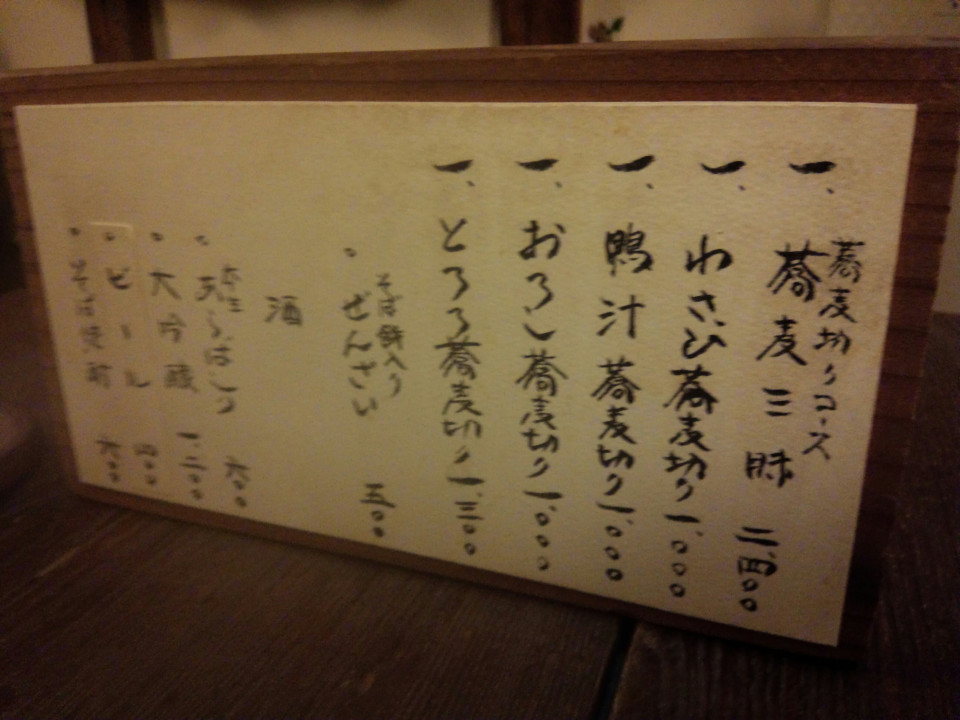 蕎麦切りコース
一、蕎麦三昧 二、四〇〇
一、わさび蕎麦切り 一、〇〇〇
一、鴨汁蕎麦切り 一、〇〇〇
一、おろし蕎麦切り 一、〇〇〇
一、とろろ蕎麦切り 一、三〇〇
そば餅入り
。ぜんざい 五〇〇
酒
。天らばしり 六〇〇
。大吟醸 一、二〇〇
。ビール 四〇〇
。そば焼酎 六〇〇